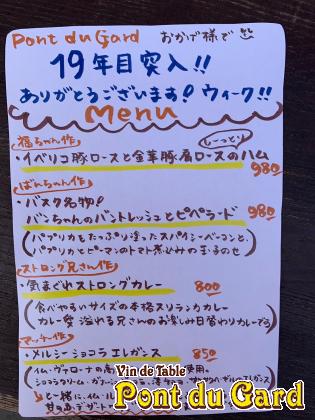 Pont du Gard おかげ様で
19年目突入!!
ありがとうございます!ウィーク!!
Menu
福ちゃん作 しーっとり
・イベリコ豚ロースと金華豚肩ロースのハム
980
ばんちゃん作
・バスク名物!
バンちゃんのバントレッシュとピペラード 980
(パプリカをたっぷり塗ったスパイシーベーコンと、
パプリカとピーマンのトマト煮込みの玉子のせ)
ストロング兄さん作
・気まぐれストロングカレー 800
(食べやすいサイズの本格スリランカカレー
カレー愛溢れる兄さんのお楽しみ日替わりカレーです)
マッチ作
・メルシーショコラエレガンス 850
使用。
Vin de Table
Pont du Gard